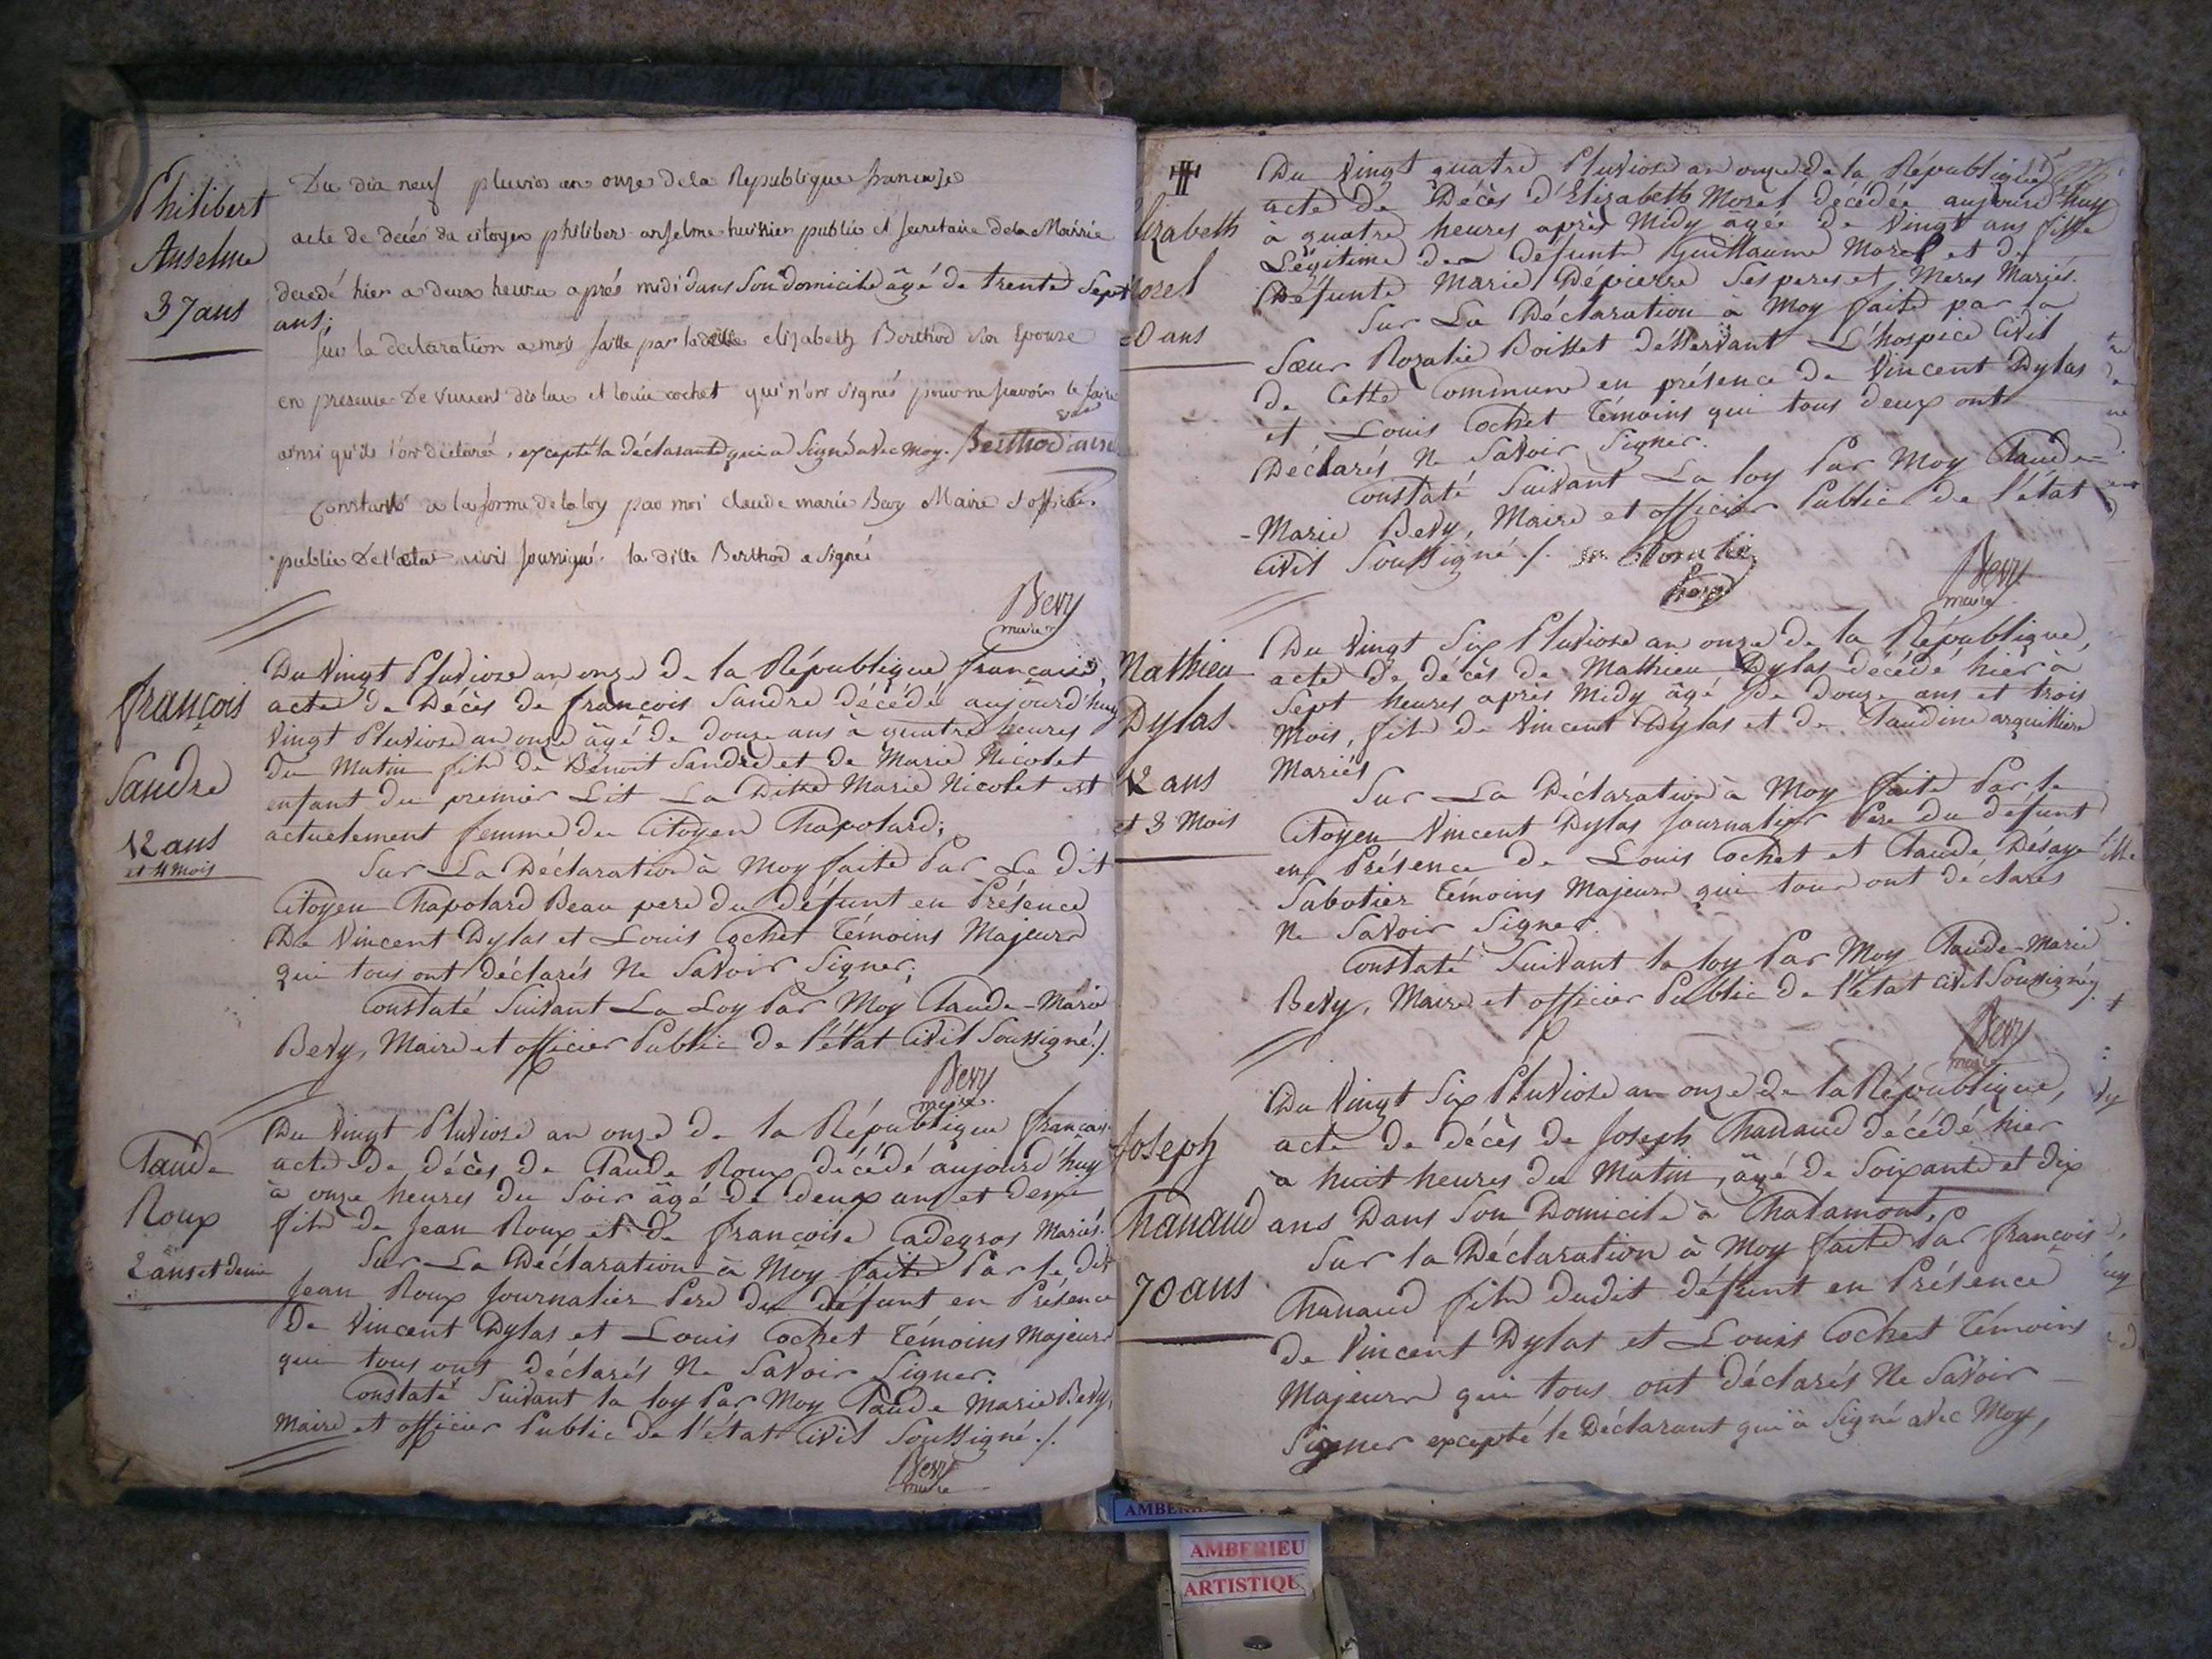 Philibert
Anselme
37 ans
Du dix neuf pluvios an onze de la Republique francaise
acte de decés du citoyen philiber anselme huissier public et secretaire de la Mairie
decedé hier a deux heures aprés midi dans son domicile âgé de trente sept
ans;
sur la declaration a moi faitte par la ditte elizabeth Berthod son Epouse
en presence De vincent dislas et louis cochet qui n'on signés pour ne scavoir le faire
ainsi qu'ils l'on déclaré, excepté la déclarante qui a signé avec moy. Berthod
Constaté a la forme de la loy par moi claude marie Bevy Maire et officier
public De l'etat civil soussigné. la ditte Berthod a signé
Bevy
maire
françois
Sandre
12 ans
et 4 mois
Du Vingt Pluviose an onze de la République française,
acte de Décès de françois Sandre décédé aujourd'huy
Vingt Pluviose an onze âgé de douze ans à quatre heures
du Matin fils de Benoit Sandre et de Marie Nicolet
enfant du premier Lit La Ditte Marie Nicolet est
actuelement femme du Citoyen Chapolard;
Sur La Déclaration à Moy faite Par Le dit
Citoyen Chapolard Beau pere du défunt en Présence
De Vincent Dylas et Louis Cochet Témoins Majeurs
qui tous ont déclarés Ne Savoir Signer.
Constaté Suivant La Loy Par Moy Claude-Marie
Bevy, Maire et officier Public de l'état Civil Soussigné./.
Bevy
maire
Claude
Roux
2 ans et demi
Du Vingt Pluviose an onze de la République français.
acte de décès de Claude Roux décédé aujourd'huy
à onze heures du Soir âgé de deux ans et demi
fils de Jean Roux et de françoise Cadegros Mariés.
Sur La Déclaration à Moy faite Par le dit
Jean Roux Journalier Pere du défunt en Présence
De Vincent Dylas et Louis Cochet Témoins Majeurs
qui tous ont déclarés Ne Savoir Signer.
Constaté Suivant la loy Par Moy Claude Marie Bevy,
Maire et officier Public de l'état Civil Soussigné./.
Bevy
maire
Elizabeth
Morel
20 ans
Du Vingt quatre Pluviose an onze de la République
acte de Décès d'Elizabeth Morel décédée aujourd'huy
à quatre heures après Midy âgée de Vingt ans fille
Légitime de defunt Guillaume Morel et de
Défunte Marie Dépierre Ses peres et Meres Mariés.
Sur La Déclaration à Moy faite par la
Sœur Rozalie Boisset desservant L'hospice Civil
de Cette Commune en présence de Vincent Dylas
et Louis Cochet Témoins qui tous deux ont
Déclarés Ne Savoir Signer.
Constaté Suivant La loy Par Moy Claude-
-Marie Bevy, Maire et officier Public de l'état
Civil Soussigné./.
Bevy
maire
Mathieu
Dylas
12 ans
et 3 Mois
Du Vingt Six Pluviose an onze de la République,
acte de décès de Mathieu Dylas décédé hier à
Sept heures après Midy âgé de douze ans et trois
Mois, fils de Vincent Dylas et de Claudine arquillière
Mariés
Sur La Déclaration à Moy faite Par le
Citoyen Vincent Dylas Journalier Père du défunt
en Présence de Louis Cochet et Claude Désaye
Sabotier Témoins Majeurs qui tous ont déclarés
Ne Savoir Signer.
Constaté Suivant la loy Par Moy Claude-Marie
Bevy, Maire et officier Public de l'état Civil Soussigné
Bevy
maire
Joseph
Chanaud
70 ans
Du Vingt Six Pluviose an onze de la République,
acte de décès de Joseph Chanaud décédé hier
à huit heures du Matin, âgé de Soixante et dix
ans Dans Son Domicile à Chalamont.
Sur la Déclaration à Moy faite Par françois
Chanaud fils dudit défunt en Présence
de Vincent Dylas et Louis Cochet Témoins
Majeurs qui tous ont déclarés Ne Savoir
Signer excepté le Déclarant qui a Signé avec Moy,
AMBERIEU
ARTISTIQU